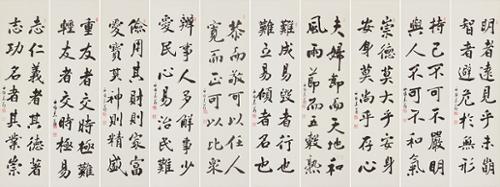 明者見乎未萌
智者避危於無形
持己不可不嚴明
與人不可不和氣
崇德莫大乎安身
安身莫尚乎存心
夫婦節而天地和
風雨節而五穀熟
難成易毀者行也
難立易傾者名也
恭而敬可以任人
寬而正可以比衆
辦事人多解事少
愛民心易治民難
儉用其財則家富
愛寶其神則精盛
重友者交時極難
輕友者交時極易
志仁義者其德著
志功名者其業崇